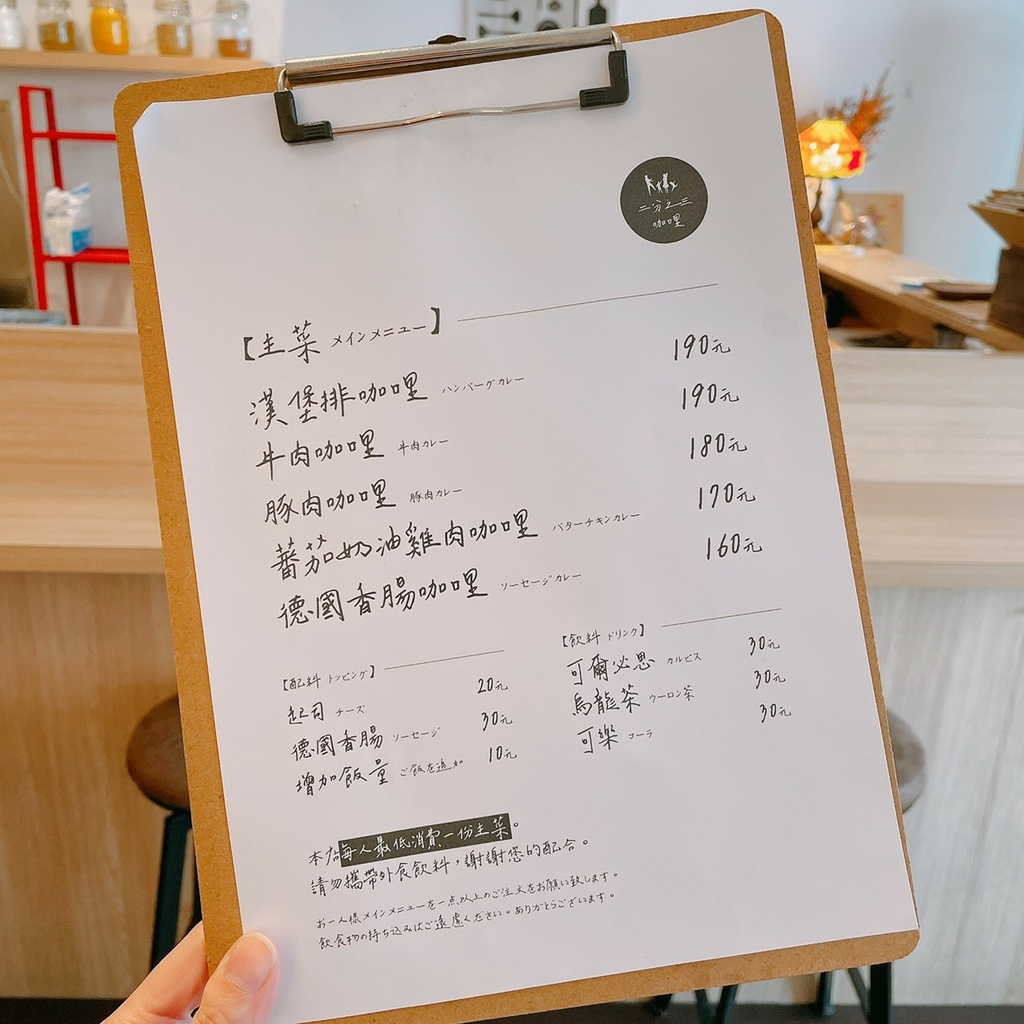 二分之三
咖哩
【主菜 メインメニュー】
漢堡排咖哩 ハンバーグカレー 190元
牛肉咖哩 牛肉カレー 190元
豚肉咖哩 豚肉カレー 180元
蕃茄奶油雞肉咖哩 バターチキンカレー 170元
德國香腸咖哩 ソーセージカレー 160元
【配料 トッピング】
起司 チーズ 20元
德國香腸 ソーセージ 30元
增加飯量 ご飯を追加 10元
【飲料 ドリンク】
可爾必思 カルピス 30元
烏龍茶 ウーロン茶 30元
可樂 コーラ 30元
本店每人最低消費一份主菜。
請勿攜帶外食飲料，謝謝您的配合。
お一人様メインメニューを一点以上のご注文をお願い致します。
飲食物の持ち込みはご遠慮ください。ありがとうございます。